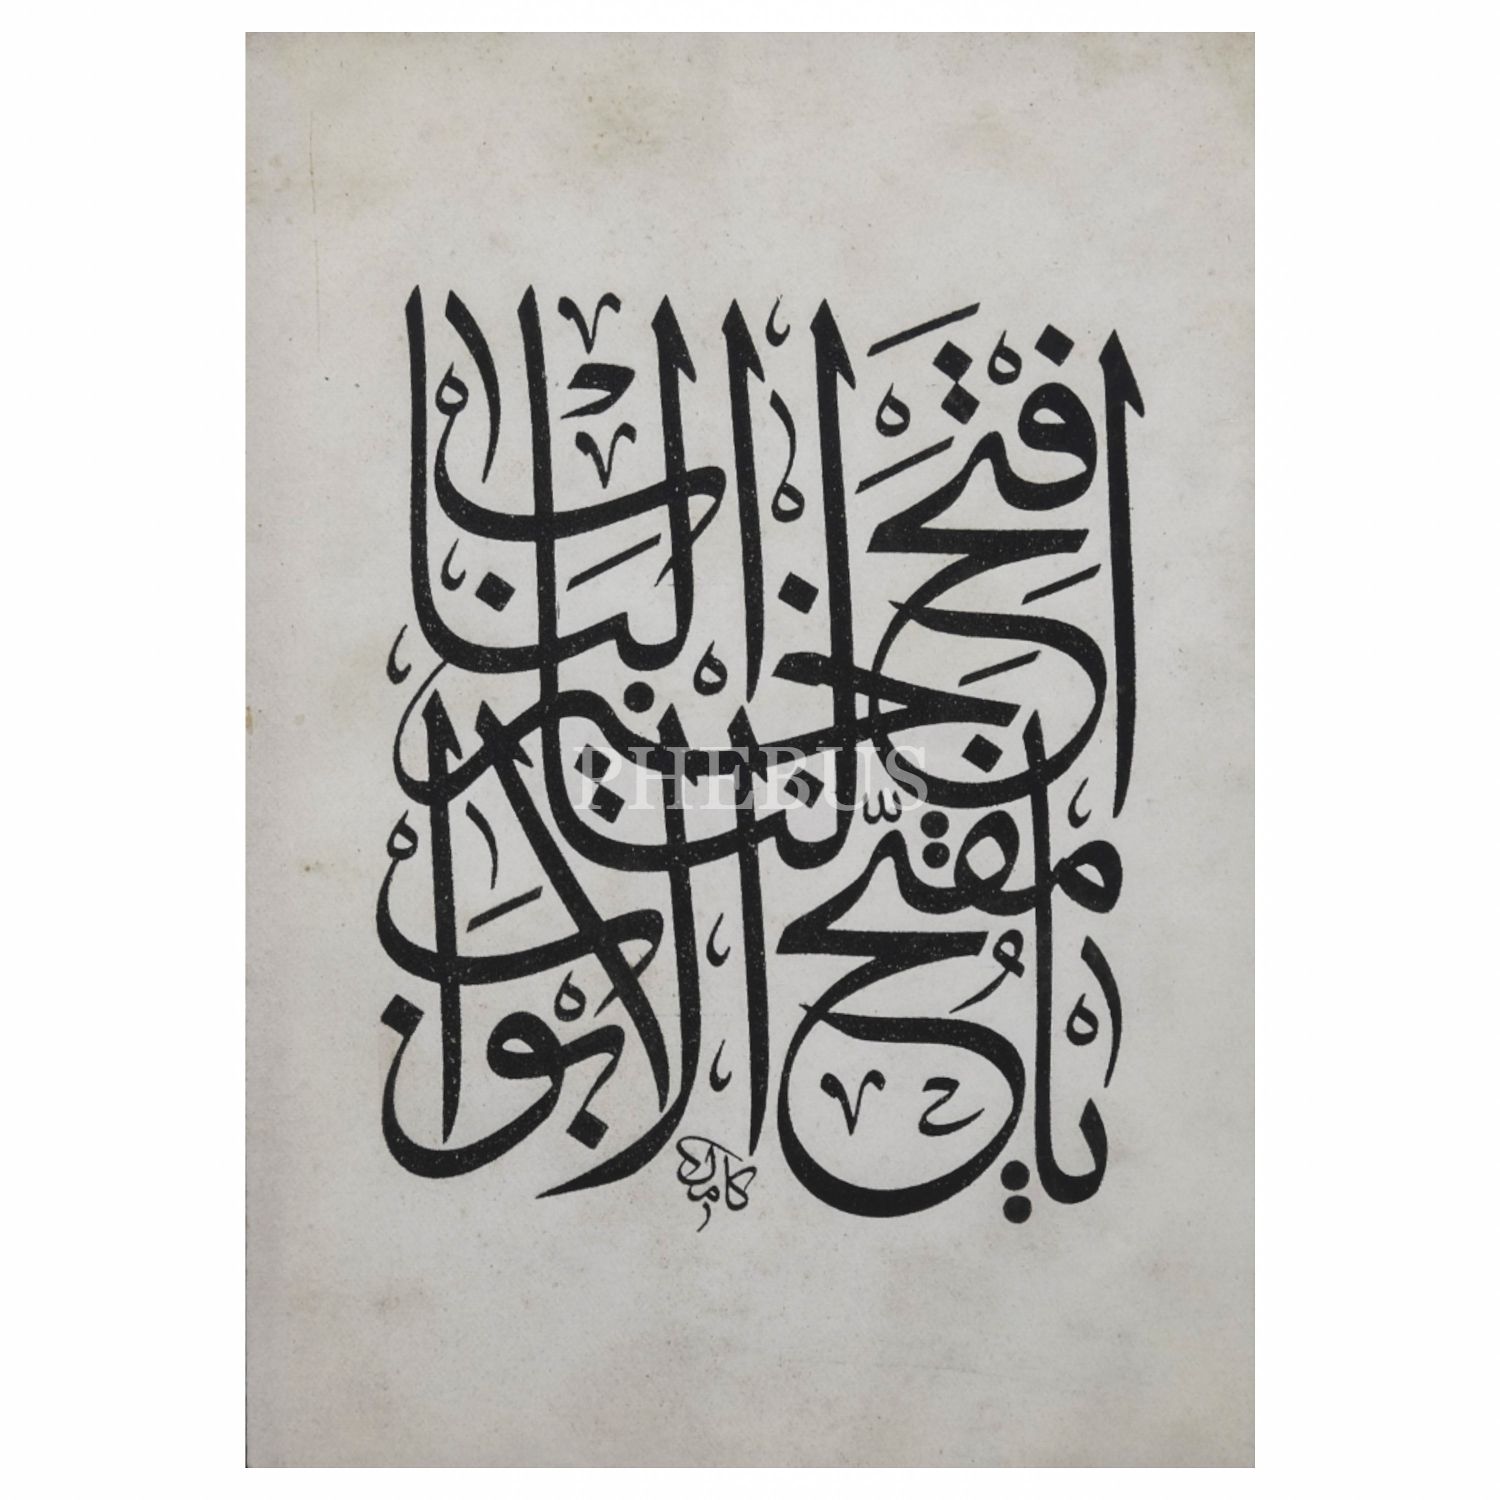 يا مفتح الابواب
افتح لنا خير الباب
PHEBUS